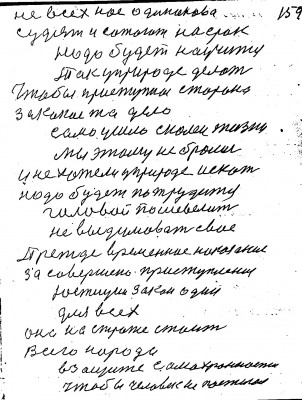 не всех нас одинакова 159
судят и сажают на срок
надо будет научити
Так природе делат
Чтобы приступки сторона
За какое та дело
само ушло жизни
Мы этому не
и не хотели природе искат
надо будет потрудити
головой пошевелит
не выдумоват свое
Прежде временное наказание
За совершено приступления
юстиции закон один
для всех
она на страже стоит
Всего народа
в защите самохранности
Чтобы человек не